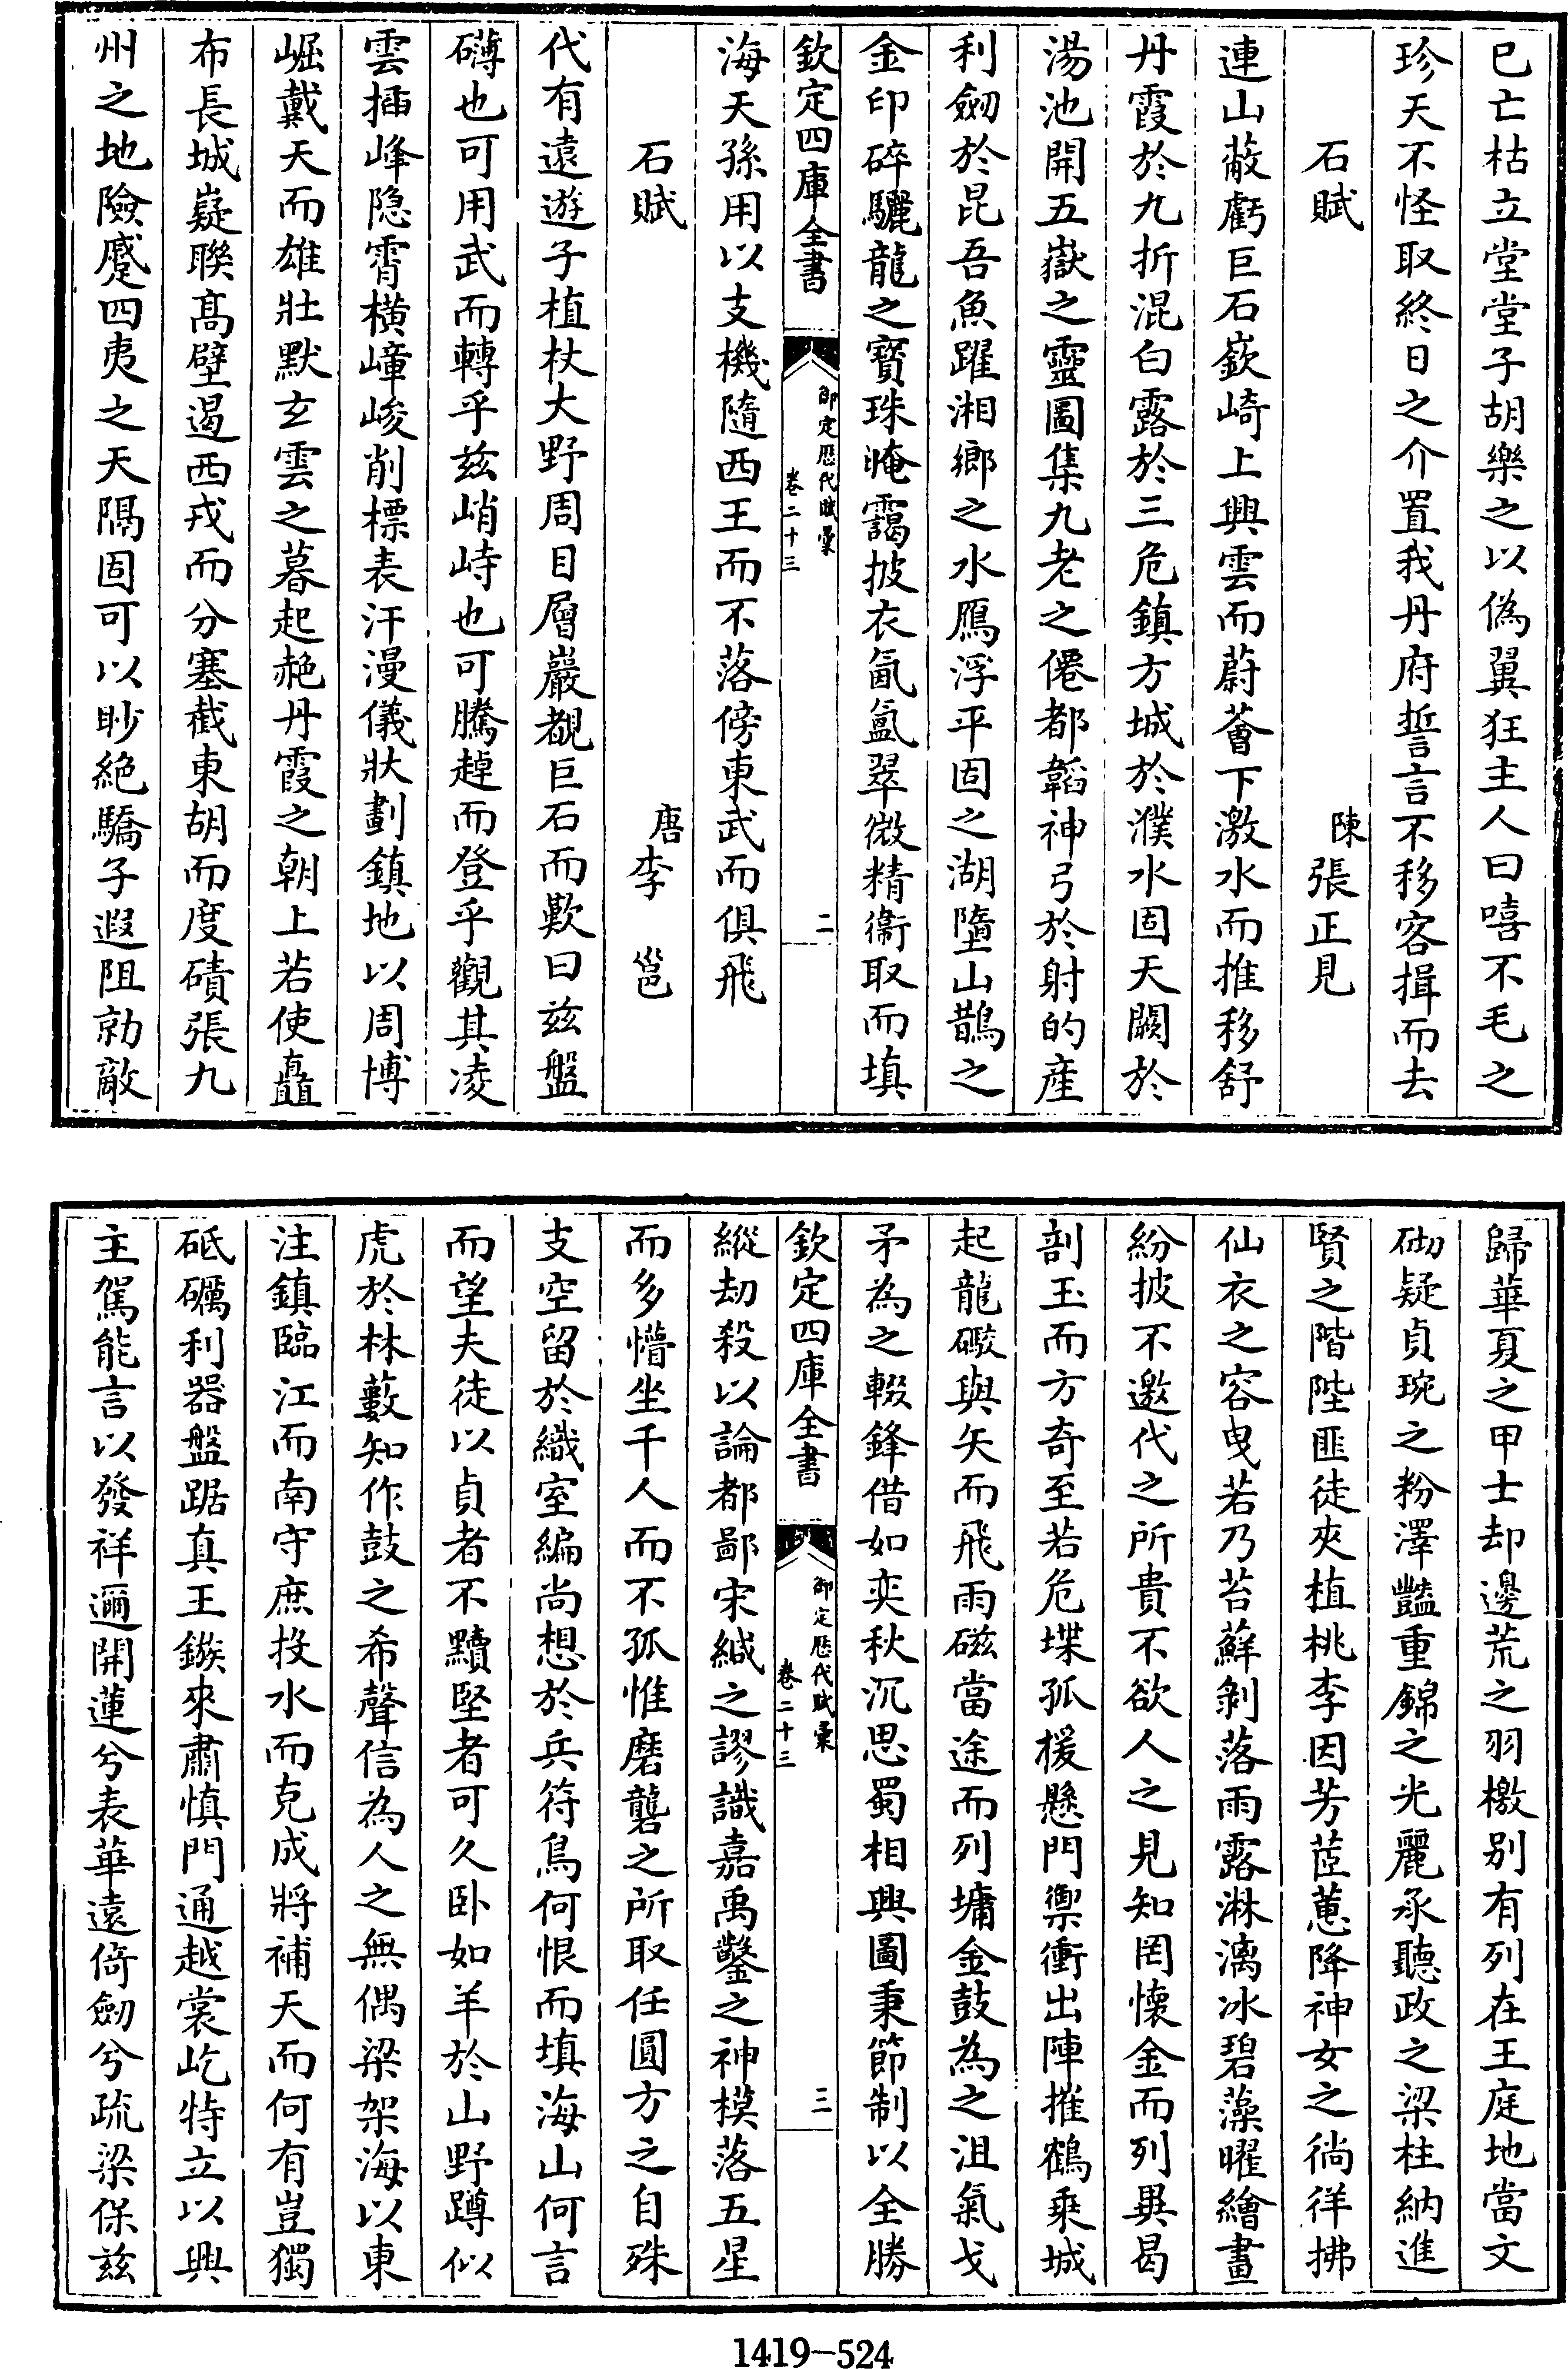 已亡枯立堂堂子胡樂之以偽翼狂主人曰嘻不毛之
珍天不怪取終日之介置我丹府誓言不移客揖而去
石賦 陳張正見
連山蔽虧巨石嶔崎上興雲而蔚薈下激水而推移舒
丹霞於九折混白露於三危鎮方城於濮水固天闕於
湯池開五嶽之靈圖集九老之僊都韜神弓於射的産
利劒於昆吾魚躍湘鄉之水鴈浮平固之湖墮山鵲之
金印碎驪龍之寳珠晻靄披衣氤氲翠微精衞取而填
欽定四庫全書 御定歴代賦彚 卷二十三 二
海天孫用以支機隨西王而不落傍東武而俱飛
石賦 唐李邕
代有遠遊子植杖大野周目層巖覩巨石而歎曰兹盤
礴也可用武而轉乎兹峭峙也可騰趠而登乎觀其凌
雲插峰隐霄横嶂峻削標表汗漫儀狀劃鎮地以周博
崛戴天而雄壯默玄雲之暮起赩丹霞之朝上若使矗
布長城嶷聯髙壁遏西戎而分塞截東胡而度磧張九
州之地險蹙四夷之天隔固可以眇絶驕子遐阻勍敵
歸華夏之甲士却邊荒之羽檄别有列在王庭地當文
砌疑貞琬之粉澤豔重錦之光麗承聽政之梁柱納進
賢之階陛匪徒夾植桃李因芳茝蕙降神女之徜徉拂
仙衣之容曳若乃苔蘚剝落雨露淋漓冰碧藻曜繪畫
紛披不邀代之所貴不欲人之見知罔懷金而列異曷
剖玉而方奇至若危堞孤援懸門禦衝出陣摧鶴乗城
起龍礮與矢而飛雨磁當途而列墉金鼓為之沮氣戈
矛為之輟鋒借如奕秋沉思蜀相興圖秉節制以全勝
欽定四庫全書 御定歴代賦彚 卷二十三 三
縱刧殺以論都鄙宋緘之謬識嘉禹鑿之神模落五星
而多懵坐千人而不孤惟磨礱之所取任圓方之自殊
支空留於織室編尚想於兵符鳥何恨而填海山何言
而望夫徒以貞者不黷堅者可久卧如羊於山野蹲似
虎於林藪知作鼓之希聲信為人之無偶梁架海以東
注鎮臨江而南守庶投水而克成將補天而何有豈獨
砥礪利器盤踞真王鏃來肅慎門通越裳屹特立以興
主駕能言以發祥邇開蓮兮表華遠倚劒兮疏梁保兹
1419-524